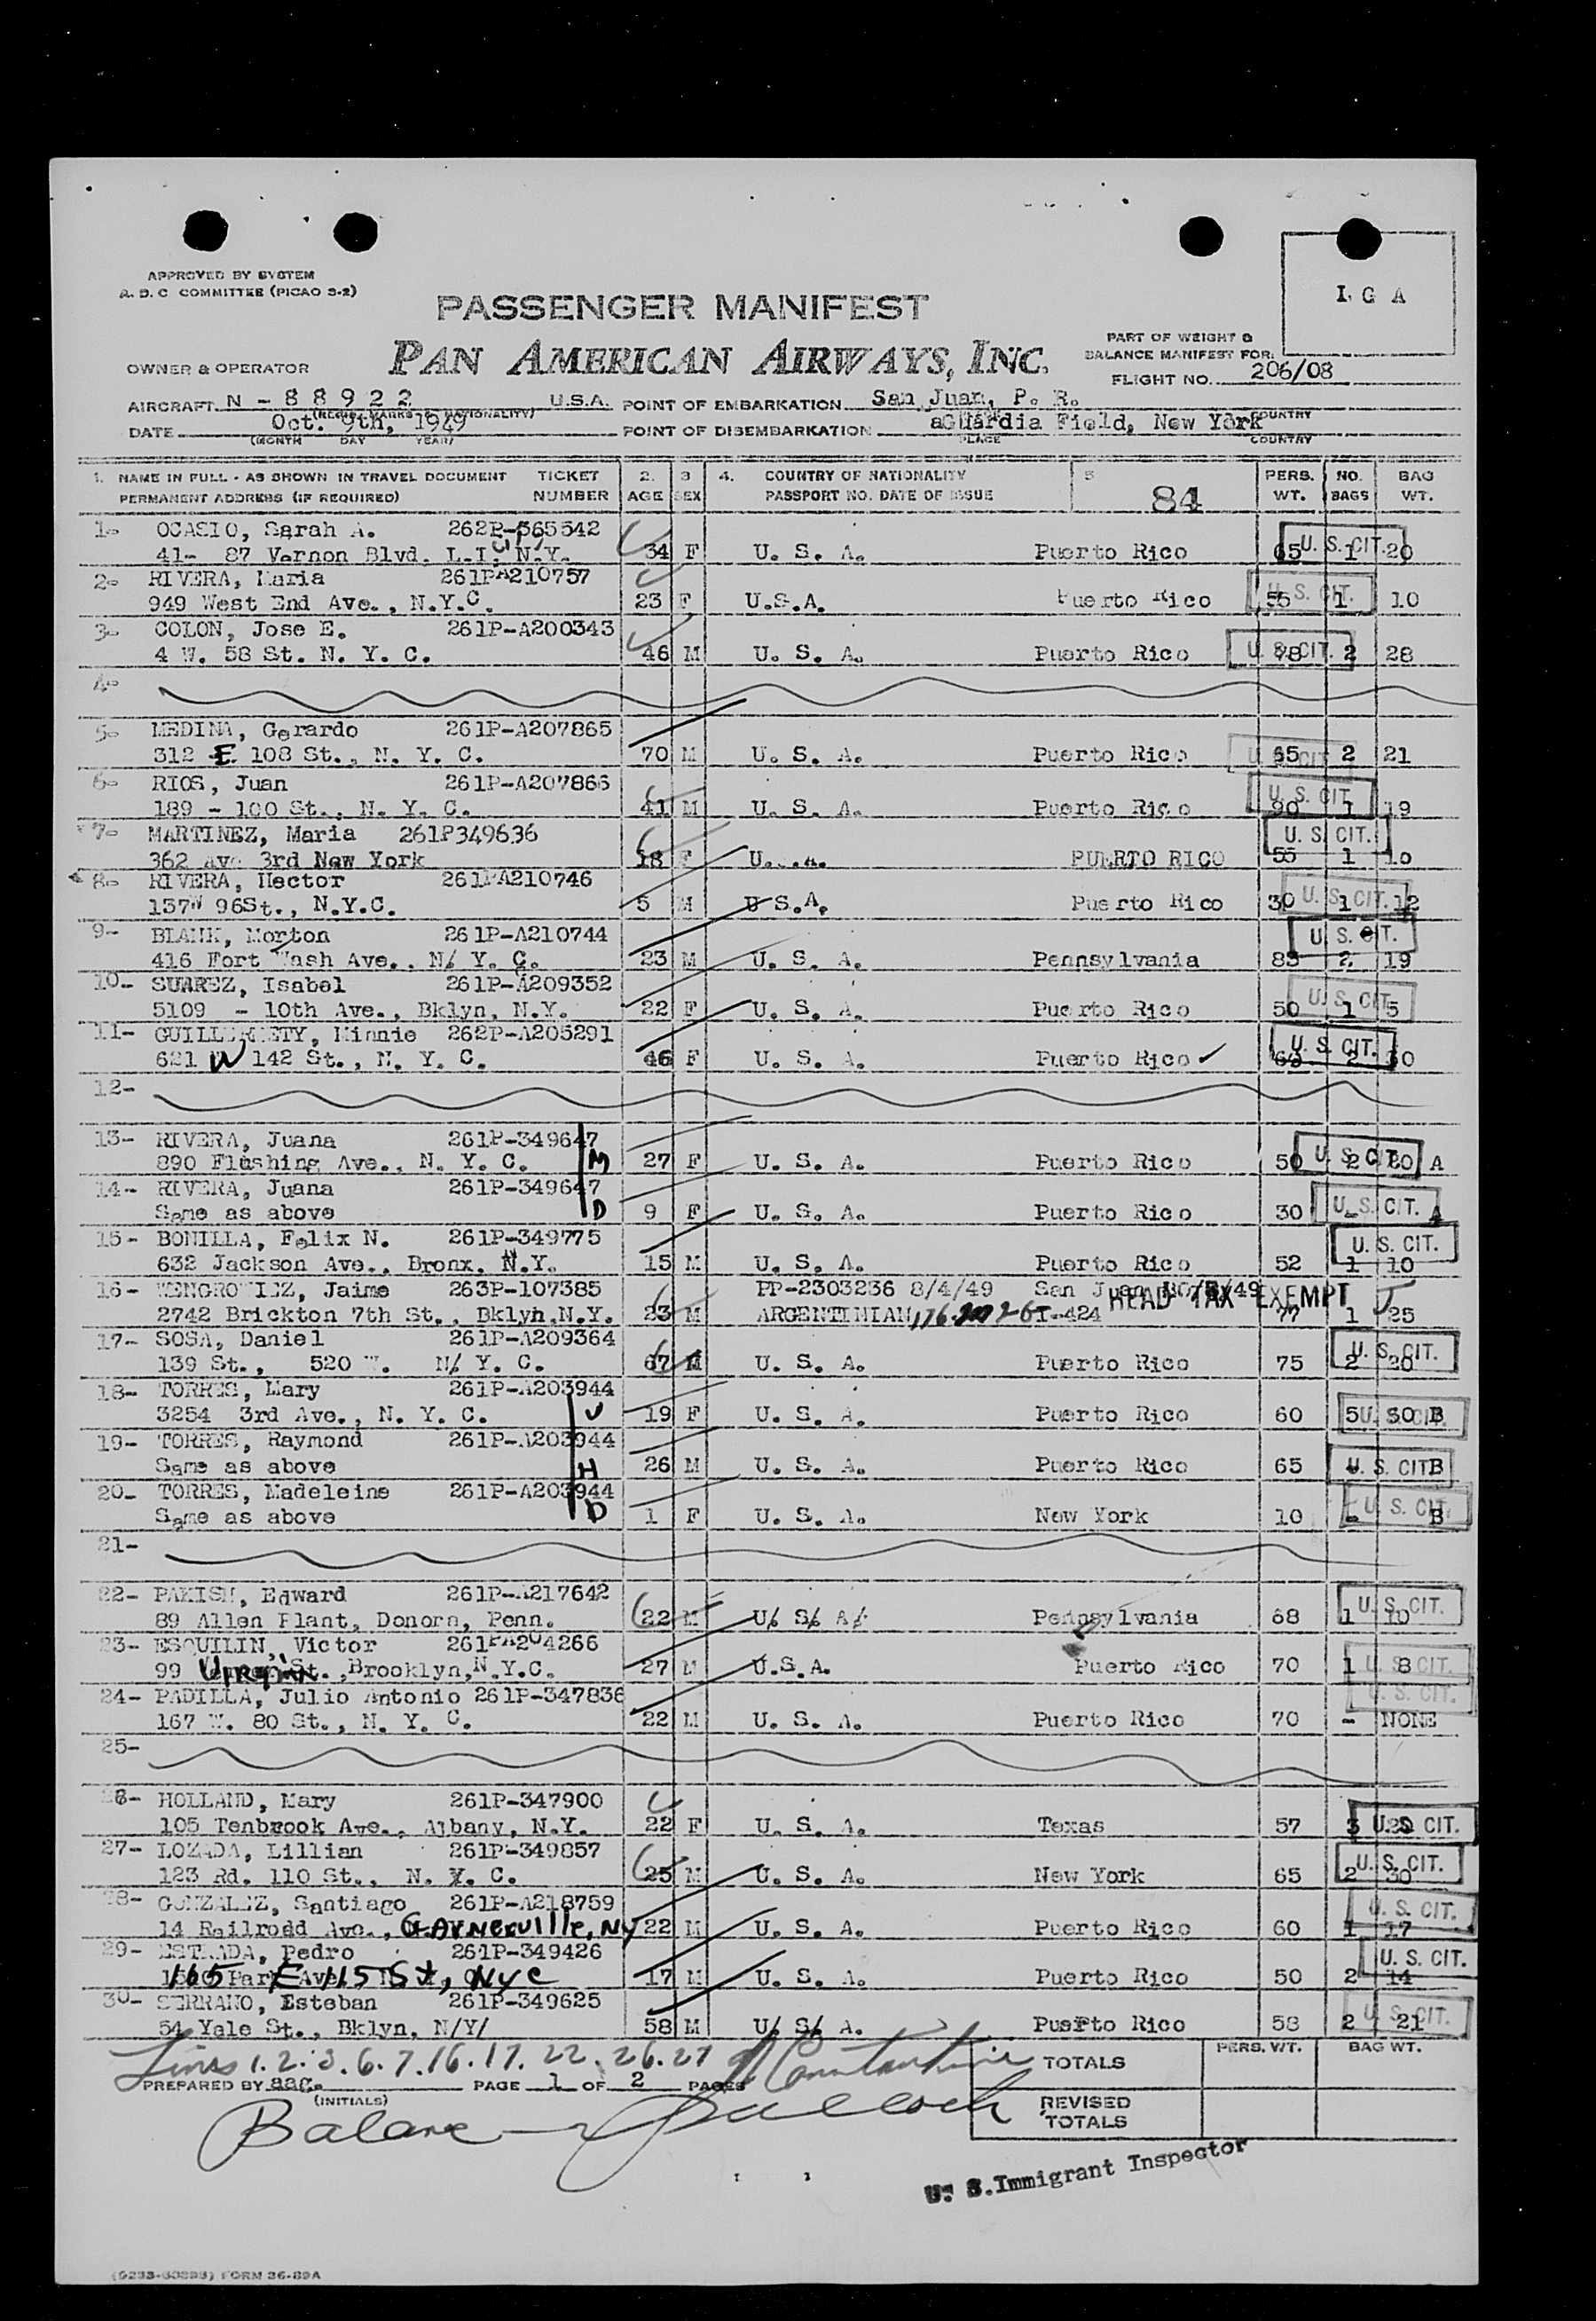 APPROVED BY SYSTEM
A. D. C COMMITTEE (PICAO S-2)
I. G A
PASSENGER MANIFEST
PAN AMERICAN AIRWAYS, INC.
PART OF WEIGHT &
BALANCE MANIFEST FOR:
OWNER & OPERATOR
FLIGHT NO. 206/08
AIRCRAFT N - 88922 U.S.A. POINT OF EMBARKATION San Juan, P. R.
DATE Oct. 9th, 1949 POINT OF DISEMBARKATION aGuardia Field, New York COUNTRY
(MONTH DAY YEAR) PLACE COUNTRY
1. NAME IN FULL - AS SHOWN IN TRAVEL DOCUMENT TICKET 2. 3 4. COUNTRY OF NATIONALITY 5 PERS. NO. BAG
PERMANENT ADDRESS (IF REQUIRED) NUMBER AGE SEX PASSPORT NO. DATE OF ISSUE 84 WT. BAGS WT.
1- OCASIO, Sarah A. 262P-365542
41- 87 Vernon Blvd. L.I. N.Y. 34 F U. S. A. Puerto Rico 65 1 20 U. S. CIT.
2- RIVERA, Maria 261PA210757
949 West End Ave., N.Y.C. 23 F U.S.A. Puerto Rico 55 1 10 U. S. CIT.
3- COLON, Jose E. 261P-A200343
4 W. 58 St. N. Y. C. 46 M U. S. A. Puerto Rico 78 2 28 U. S. CIT.
4-
5- MEDINA, Gerardo 261P-A207865
312 E 108 St., N. Y. C. 70 M U. S. A. Puerto Rico 65 2 21 U. S. CIT
6- RIOS, Juan 261P-A207866
189 - 100 St., N. Y. C. 41 M U. S. A. Puerto Rico 90 1 19 U. S. CIT.
7- MARTINEZ, Maria 261P349636
362 Ave 3rd New York 18 F U. . A. PUERTO RICO 55 1 10 U. S. CIT.
8- RIVERA, Hector 261PA210746
137W 96St., N.Y.C. 5 M U S.A. Puerto Rico 30 1 12 U. S. CIT.
9- BLANK, Morton 261P-A210744
416 Fort Wash Ave., N/ Y. C. 23 M U. S. A. Pennsylvania 83 2 19 U. S. CIT.
10- SUAREZ, Isabel 261P-A209352
5109 - 10th Ave., Bklyn, N.Y. 22 F U. S. A. Puerto Rico 50 1 5 U. S. CIT
11- Minnie 262P-A205291
621 W 142 St., N. Y. C. 46 F U. S. A. Puerto Rico 2 30 U. S. CIT.
12-
13- RIVERA, Juana 261P-349647
890 Flushing Ave., N. Y. C. M 27 F U. S. A. Puerto Rico 50 2 20 A U. S. CIT.
14- RIVERA, Juana 261P-349647
Same as above D 9 F U. S. A. Puerto Rico 30 - A U. S. CIT.
15- BONILLA, Felix N. 261P-349775
632 Jackson Ave., Bronx, N.Y. 15 M U. S. A. Puerto Rico 52 1 10 U. S. CIT.
16- Jaime 263P-107385 PP-2303236 8/4/49 San Juan HEAD TAX EXEMPT
2742 Brickton 7th St., Bklyn,N.Y. 23 M ARGENTINIAN, I-424 77 1 25
17- SOSA, Daniel 261P-A209364
139 St., 520 W. N/ Y. C. 67 M U. S. A. Puerto Rico 75 2 20 U. S. CIT.
18- TORRES, Mary 261P-A203944
3254 3rd Ave., N. Y. C. 19 F U. S. A. Puerto Rico 60 5 30 B U. S. CIT.
19- TORRES, Raymond 261P-A203944
Same as above H 26 M U. S. A. Puerto Rico 65 B U. S. CIT.
20- TORRES, Madeleine 261P-A203944
Same as above D 1 F U. S. A. New York 10 - B U. S. CIT.
21-
22- Edward 261P-A217642
89 Allen Plant, Donora, Penn. 22 M U/ S/ A/ Pennsylvania 68 1 10 U. S. CIT.
23- ESQUILIN, Victor 261PA204266
99 St. ,Brooklyn,N.Y.C. 27 M U.S.A. Puerto Rico 70 1 8 U. S. CIT.
24- PADILLA, Julio Antonio 261P-347836
167 W. 80 St., N. Y. C. 22 M U. S. A. Puerto Rico 70 - NONE U. S. CIT.
25-
26- HOLLAND, Mary 261P-347900
105 Tenbrook Ave., Albany, N.Y. 22 F U. S. A. Texas 57 3 20 U. S. CIT.
27- LOZADA, Lillian 261P-349857
123 Rd. 110 St., N. Y. C. 25 M U. S. A. New York 65 2 30 U. S. CIT.
28- GONZALEZ, Santiago 261P-A218759
14 Railroad Ave., Garnerville, NY 22 M U. S. A. Puerto Rico 60 1 17 U. S. CIT.
29- ESTRADA, Pedro 261P-349426
165 E 115 St, NYC 17 M U. S. A. Puerto Rico 50 2 14 U. S. CIT.
30- SERRANO, Esteban 261P-349625
54 Yale St., Bklyn, N/Y/ 58 M U/ S/ A. Puerto Rico 58 2 21 U. S. CIT.
Lines 1.2.3.6.7.16.17.22.26.27
TOTALS PERS. WT. BAG WT.
PREPARED BY aac. PAGE 1 OF 2 PAGES
(INITIALS)
REVISED
TOTALS
Balance
U. S.Immigrant Inspector
FORM 26-89A